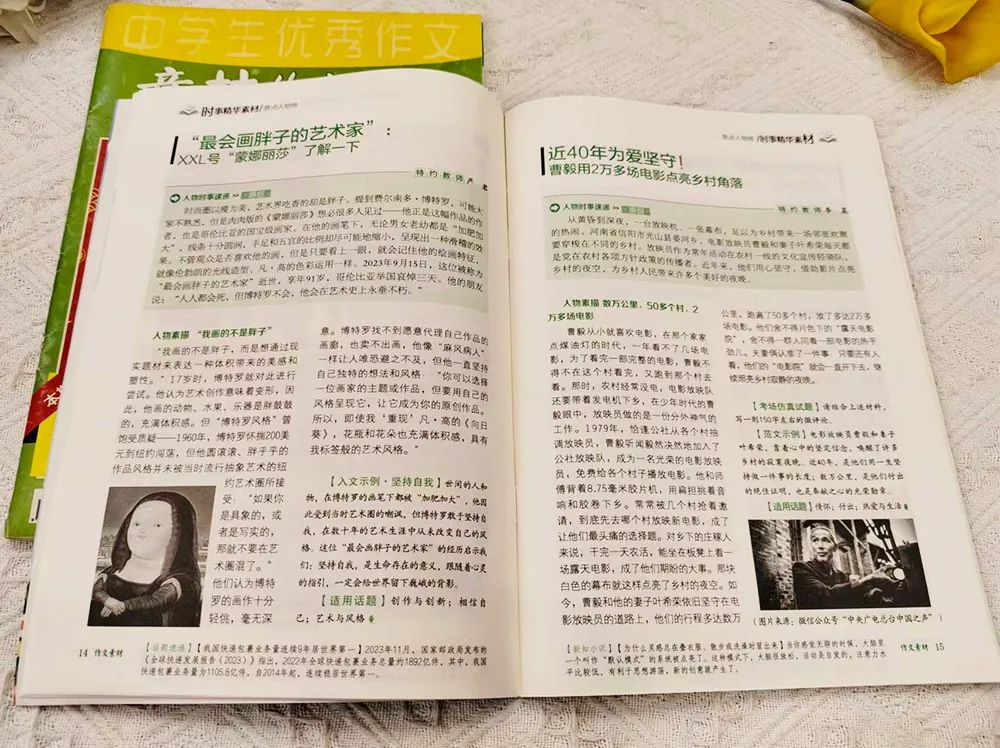 中学生优秀作文
时事精华素材/焦点人物榜
“最会画胖子的艺术家”：
XXL号“蒙娜丽莎”了解一下
特约教师
人物时事速递>>
时尚圈以瘦为美，艺术界吃香的却是胖子。提到费尔南多·博特罗，可能大
家不熟悉，但是肉肉版的《蒙娜丽莎》想必很多人见过——他正是这幅作品的作
者，也是哥伦比亚的国宝级画家。在他的画笔下，无论男女老幼都是“加肥加
大”，线条十分圆润，手足和五官的比例却尽可能地缩小，呈现出一种滑稽的效
果。不管观众是否喜欢他的画，但是只要看上一眼，就会记住他的绘画特征，
就像伦勃朗的光线造型、凡·高的色彩运用一样。2023年9月15日，这位被称为
“最会画胖子的艺术家”逝世，享年91岁。哥伦比亚举国哀悼三天。他的朋友
说：“人人都会死，但博特罗不会，他会在艺术史上永垂不朽。”
人物素描 “我画的不是胖子”
“我画的不是胖子，而是想通过现
实题材来表达一种体积带来的美感和
塑性。”17岁时，博特罗就对此进行
尝试。他认为艺术创作意味着变形，因
此，他画的动物、水果、乐器是胖鼓鼓
的，充满体积感。但“博特罗风格”曾
饱受质疑——1960年，博特罗怀揣200美
元到纽约闯荡，但他圆滚滚、胖乎乎的
作品风格并未被当时流行抽象艺术的纽
约艺术圈所接
受：“如果你
是具象的，或
者是写实的，
那就不要在艺
术圈混了。”
他们认为博特
罗的画作十分
轻佻，毫无深
意。博特罗找不到愿意代理自己作品的
画廊，也卖不出画，他像“麻风病人”
一样让人唯恐避之不及，但他一直坚持
自己独特的想法和风格：“你可以选择
一位画家的主题或作品，但要用自己的
风格呈现它，让它成为你的原创作品。
所以，即使我‘重现’凡·高的《向日
葵》，花瓶和花朵也充满体积感，具有
我标签般的艺术风格。”
【入文示例·坚持自我】世间的人和
物，在博特罗的画笔下都被“加肥加大”，他因
此受到当时艺术圈的嘲讽，但博特罗敢于坚持自
我，在数十年的艺术生涯中从未改变自己的风
格。这位“最会画胖子的艺术家”的经历启示我
们：坚持自我，是生命存在的意义，跟随着心灵
的指引，一定会给世界留下巍峨的背影。
【适用话题】创作与创新；相信自
己；艺术与风格
14 作文素材
【话题速递】【我国快递包裹业务量连续9年居世界第一】2023年11月，国家邮政局发布的
《全球快递发展报告（2023）》指出，2022年全球快递包裹业务总量约1892亿件，其中，我国
快递包裹业务量为1105.8亿件，自2014年起，连续稳居世界第一。
焦点人物榜/时事精华素材
近40年为爱坚守！
曹毅用2万多场电影点亮乡村角落
特约教师
人物时事速递>>
从黄昏到深夜，一台放映机、一张幕布，足以为乡村带来一场邻里欢聚
的热闹。河南省信阳市光山县晏河乡，电影放映员曹毅和妻子叶希荣每天都
要穿梭在不同的乡村。放映员作为常年活动在农村一线的文化宣传轻骑队，
是党在农村各项方针政策的传播者。近年来，他们用心坚守，借助影片点亮
乡村的夜空，为乡村人民带来许多个美好的夜晚。
人物素描 数万公里，50多个村，2
万多场电影
曹毅从小就喜欢电影，在那个家家
点煤油灯的时代，一年看不了几场电
影，为了看完一部完整的电影，曹毅不
得不在这个村看完，又跑到那个村去
看。那时，农村经常没电，电影放映队
还要带着发电机下乡，在少年时代的曹
毅眼中，放映员做的是一份分外神气的
工作。1979年，恰逢公社从各个村抽
调放映员，曹毅听闻毅然决然地加入了
公社放映队，成为一名光荣的电影放映
员，免费给各个村子播放电影。他和师
傅背着8.75毫米胶片机，用扁担挑着音
响和胶卷下乡。常常被几个村抢着邀
请，到底先去哪个村放映新电影，成了
让他们最头痛的选择题。对乡下的庄稼人
来说，干完一天农活，能坐在板凳上看一
场露天电影，成了他们期盼的大事。那块
白色的幕布就这样点亮了乡村的夜空。如
今，曹毅和他的妻子叶希荣依旧坚守在电
影放映员的道路上，他们的行程多达数万
公里，跑遍了50多个村，放了多达2万多
场电影。他们舍不得月色下的“露天电影
院”，舍不得一群人同看一部电影的热乎
劲儿。夫妻俩认准了一件事：只要还有人
看，他们的“电影院”就会一直开下去，继
续照亮乡村寂静的夜晚。
【考场仿真试题】请结合上述材料，
写一则150字左右的微评论。
【范文示例】电影放映员曹毅和妻子
叶希荣，靠着心中的坚定信念，唤醒了许多
乡村的寂寞夜晚。近40年，是他们用一生坚
持做一件事的长度；数万公里，是他们付出
的绝佳证明，也是奉献之心的光荣勋章。
【适用话题】情怀；付出；热爱与生活
（图片来源：微信公众号“中央广电总台中国之声”）
【新知小识】【为什么灵感总在叠衣服、散步或洗澡时冒出来】当你感觉无聊的时候，大脑里
一个叫作“默认模式”的系统被点亮了。这种模式下，大脑很放松，活动是自发的，注意力水
平比较低，有利于思想游荡，新的创意就产生了。
作文素材 15